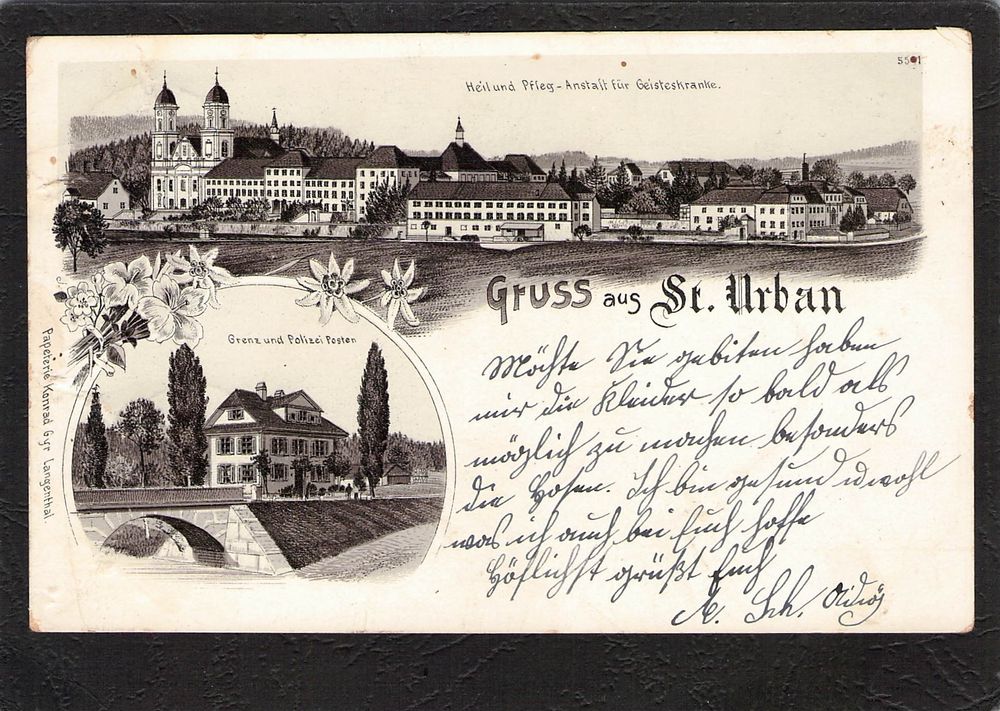 5591
Heil und Pfleg-Anstalt für Geisteskranke.
Gruss aus St. Urban
Grenz und Polizei Posten
Papeterie Konrad Gyr Langenthal.
Möchte Sie gebiten haben
mir die Kleider so bald als
möglich zu machen besonders
die Hosen. Ich bin gesund u wohl
was ich auch bei Euch hoffe
Höflichst grüßt Euch
A. Sch. Adiös